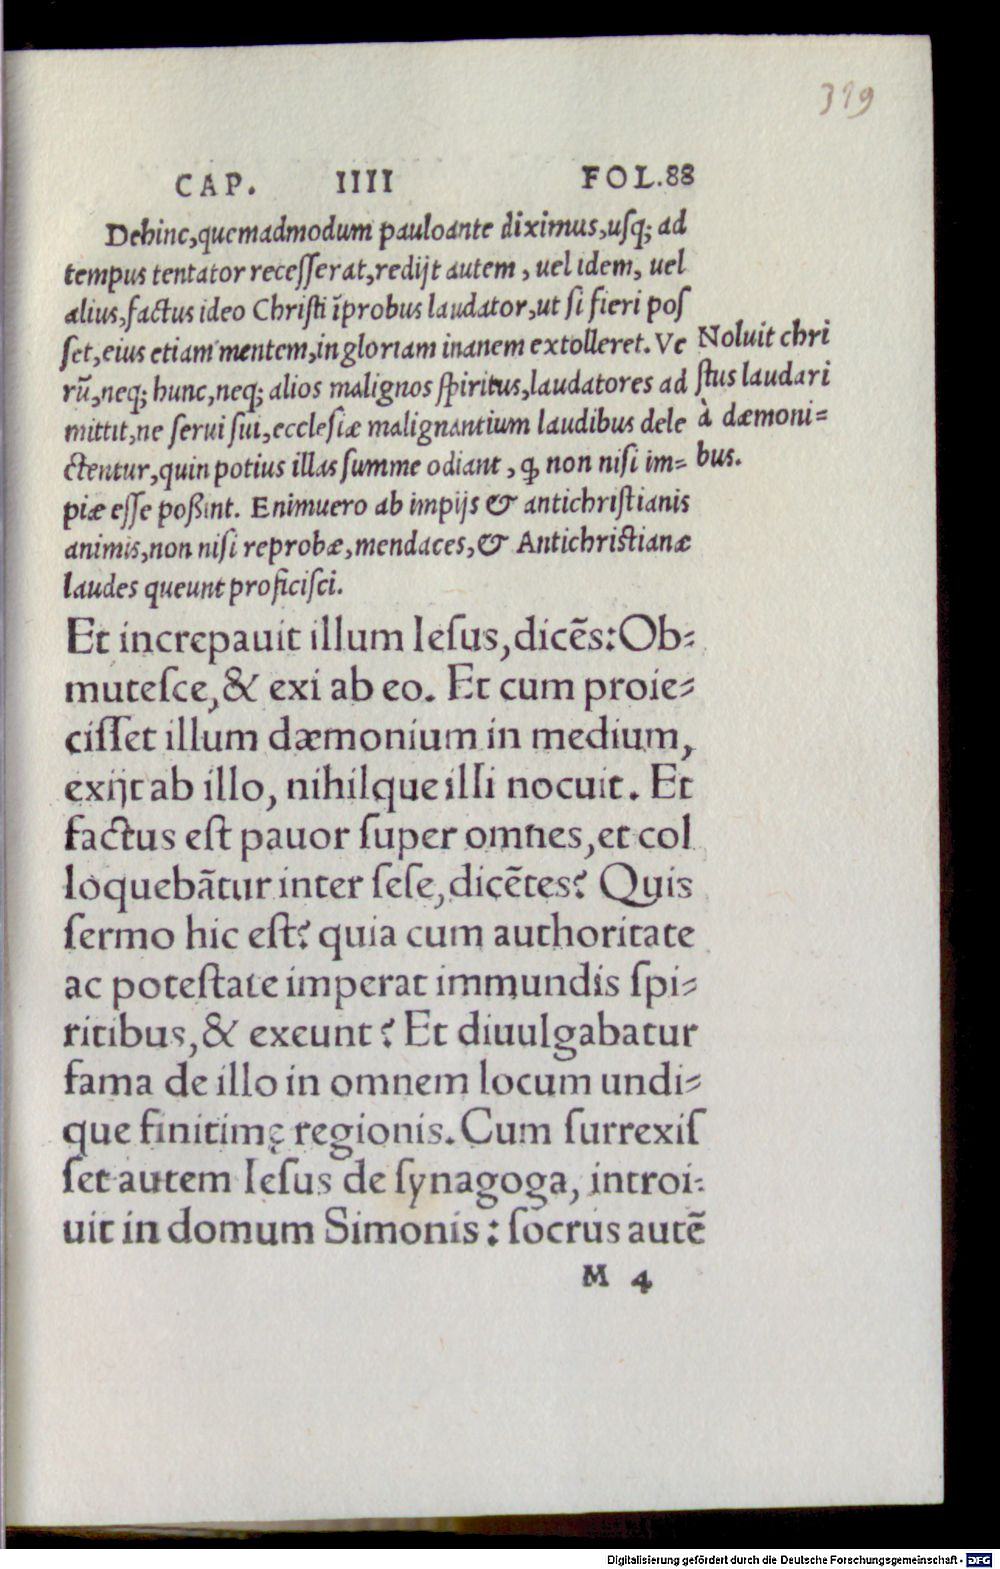 319
CAP. IIII FOL.88
Dehinc,quemadmodum pauloante diximus,uſq; ad
tempus tentator receſſerat,redijt autem, uel idem, uel
alius,factus ideo Chriſti īprobus laudator,ut ſi fieri poſ
ſet,eius etiam mentem,in gloriam inanem extolleret. Ve
rũ,neq; hunc,neq; alios malignos ſpiritus,laudatores ad
mittit,ne ſerui ſui,eccleſiæ malignantium laudibus dele
ctentur,quin potius illas ſumme odiant, ꝙ non niſi im=
piæ eſſe poßint. Enimuero ab impijs & antichriſtianis
animis,non niſi reprobæ,mendaces,& Antichristianæ
laudes queunt proficiſci.
Noluit chri
ſtus laudari
à dæmoni=
bus.
Et increpauit illum Ieſus,dicẽs:Ob⸗
muteſce,& exi ab eo. Et cum proie⸗
ciſſet illum dæmonium in medium,
exijt ab illo, nihilque illi nocuit. Et
factus eſt pauor ſuper omnes,et col
loquebãtur inter ſeſe,dicẽtes? Quis
ſermo hic eſt? quia cum authoritate
ac poteſtate imperat immundis ſpi⸗
ritibus,& exeunt? Et diuulgabatur
fama de illo in omnem locum undi⸗
que finitimę regionis. Cum ſurrexiſ
ſet autem Ieſus de ſynagoga, introi⸗
uit in domum Simonis: ſocrus autẽ
M 4
Digitalisierung gefördert durch die Deutsche Forschungsgemeinschaft - DFG